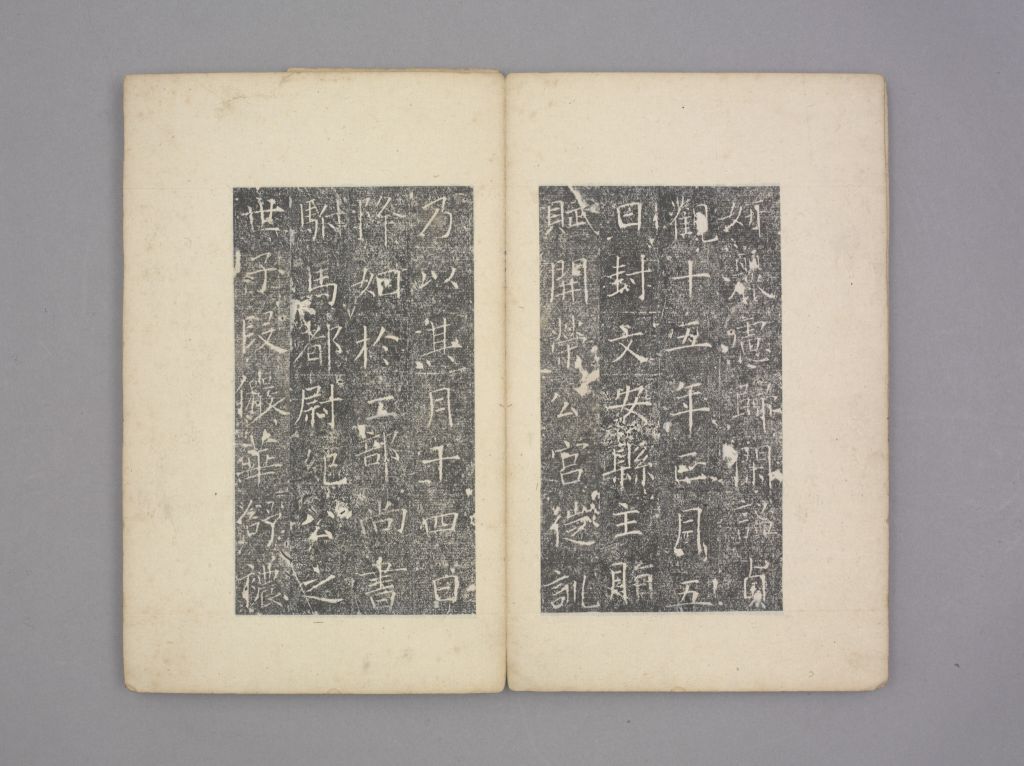 閑貞
觀十五年正月五
日封文安縣主
賦開榮公宮從訓
乃以其月十四日
降姻於工部尚書
駙馬都尉紀公之
世子段儼華舒穠